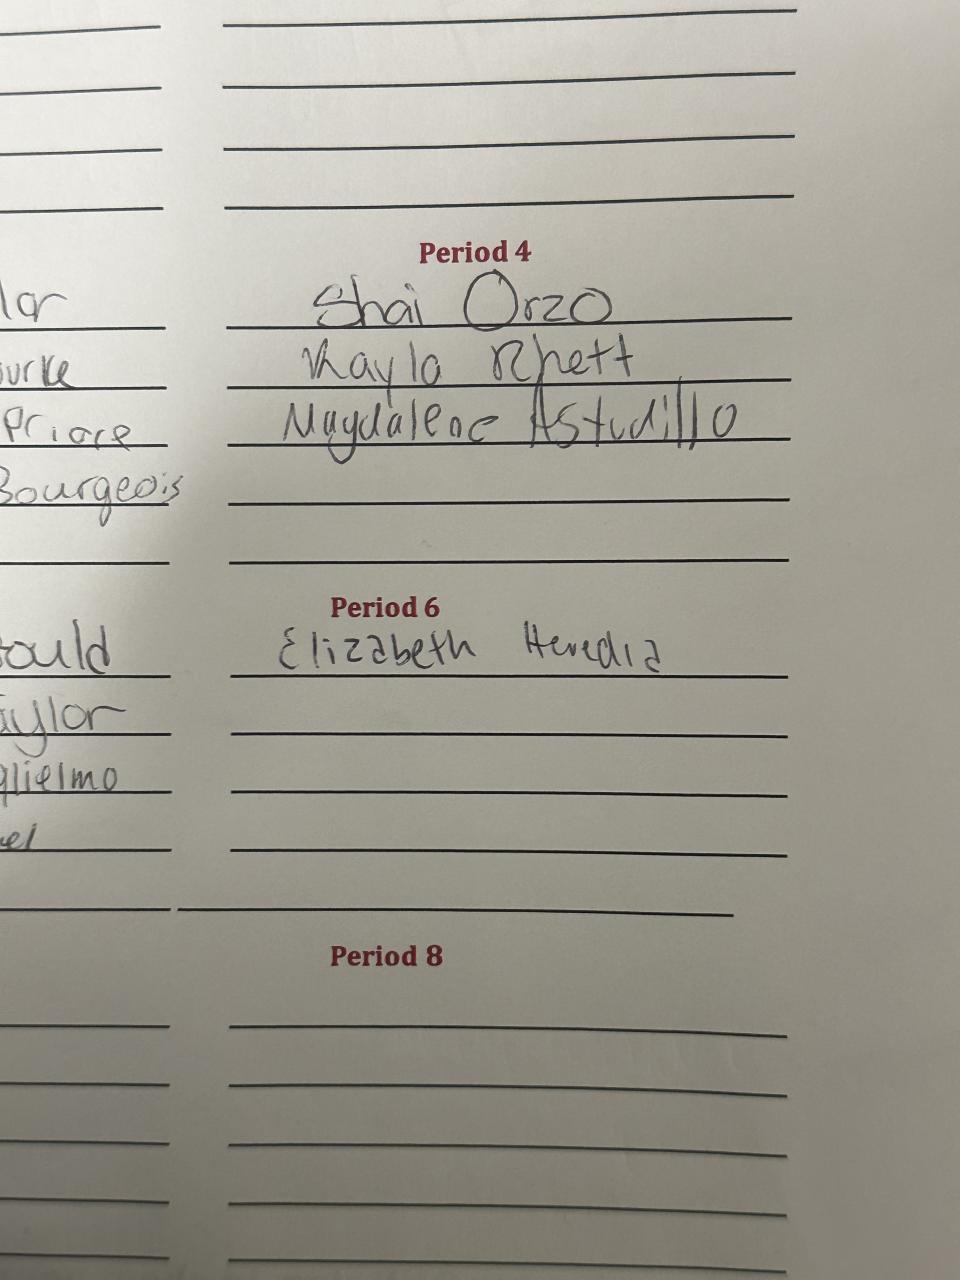 Period 4
lor
Shai Orzo
ourke
Kayla Rhett
Priore
Magdalene Astudillo
Bourgeois
Period 6
ould
Elizabeth Heredia
aylor
glielmo
el
Period 8